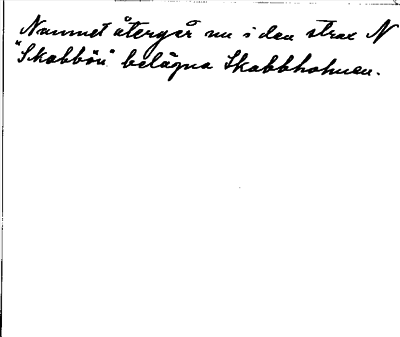 Namnet återgår nu i den strax N
"Skabbön" belägna Skabbholmen.